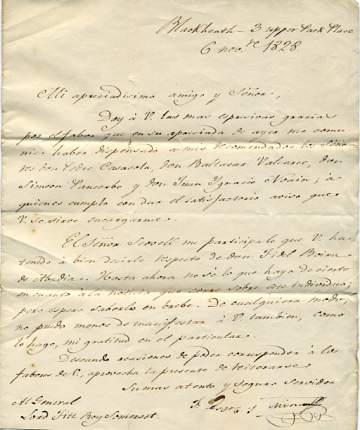 Blackheath - 3 upper Park Place
6 nov.re 1828
Mi apreciadisimo amigo y Señor,
Doy à V. las mas espresivas gracias
por el fabor que en su apreciada de ayer me comu-
nica haber dispensado a mis recomendados los Seño-
res don Pedro Casasola, don Baltasar Valcarce, don
Simeon y don Juan Ygnacio Noain; à
quienes cumplo con dar el satisfactorio aviso que
V. se sirve encargarme.
El Señor Scovell me participa lo que V. ha
tenido à bien decirle respecto de don Fidel Boira
de Abadia. Hasta ahora no sé lo que haya de cierto
en cuanto à la noticia que corre sobre este individuo;
pero espero saberlo en brebe. De cualquiera modo,
no puedo menos de manifestar à V. tambien, como
lo hago, mi gratitud en el particular.
Deseando ocasiones de poder corresponder à los
fabores de V., aprovecha la presente de reiterarse
Su mas atento y seguro servidor
M. General
Lord Fitz Roy Somerset.